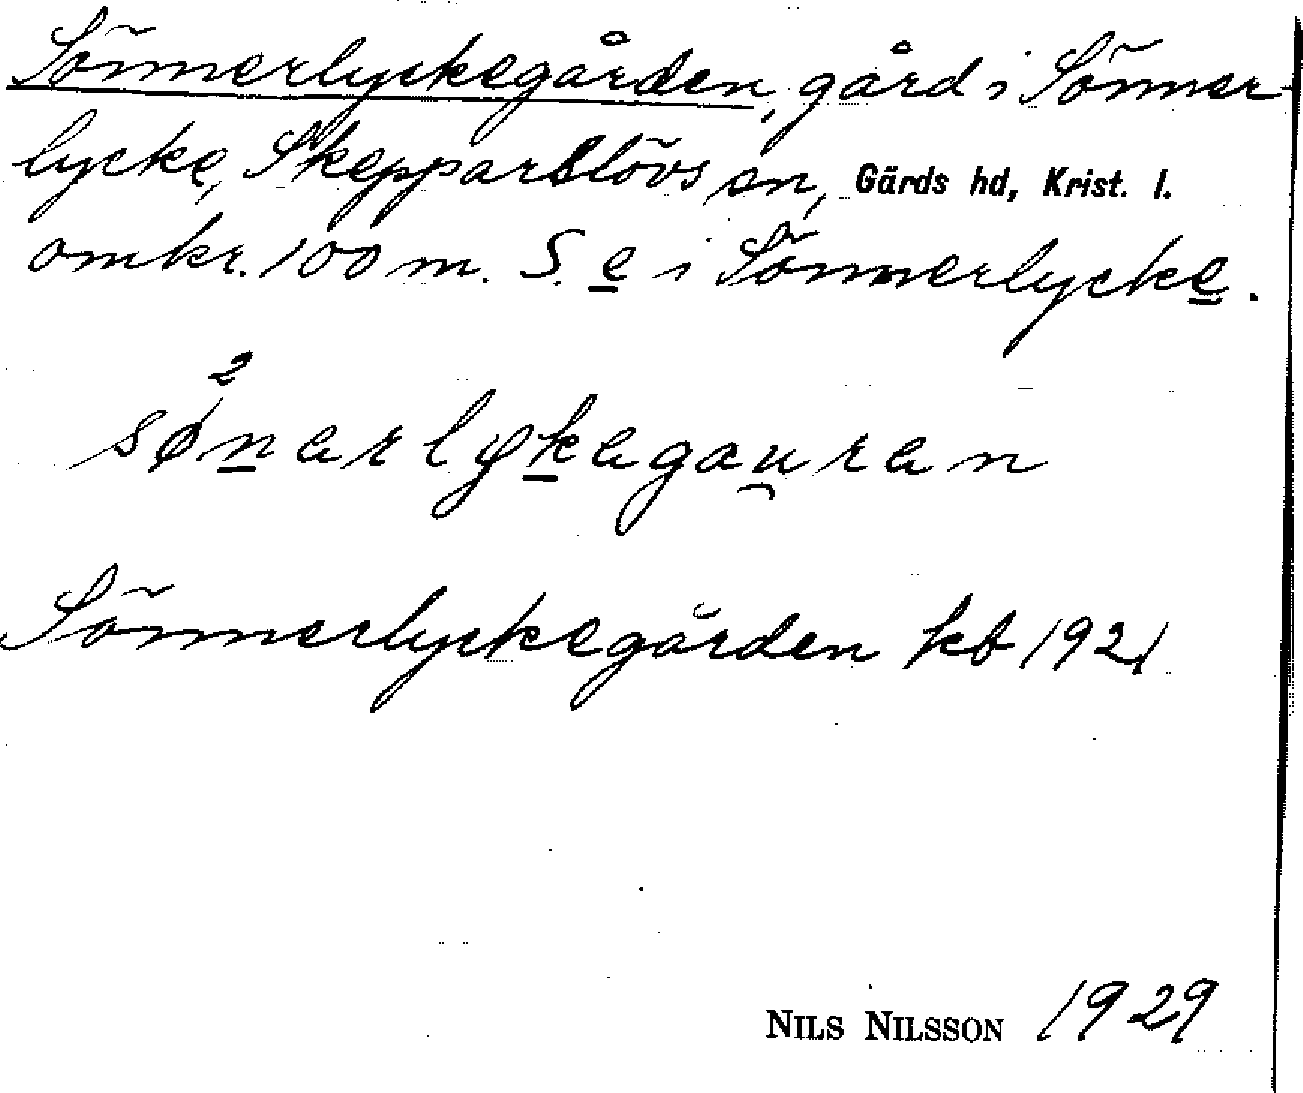 Sönnerlyckegården, gård i Sönner-
lycke, Skepparslövs sn, Gärds hd, Krist. l.
omkr. 100 m. S. e i Sönnerlycke.
2
sønarlykagau̯ran
Sönnerlyckegården kb 1921
NILS NILSSON 1929